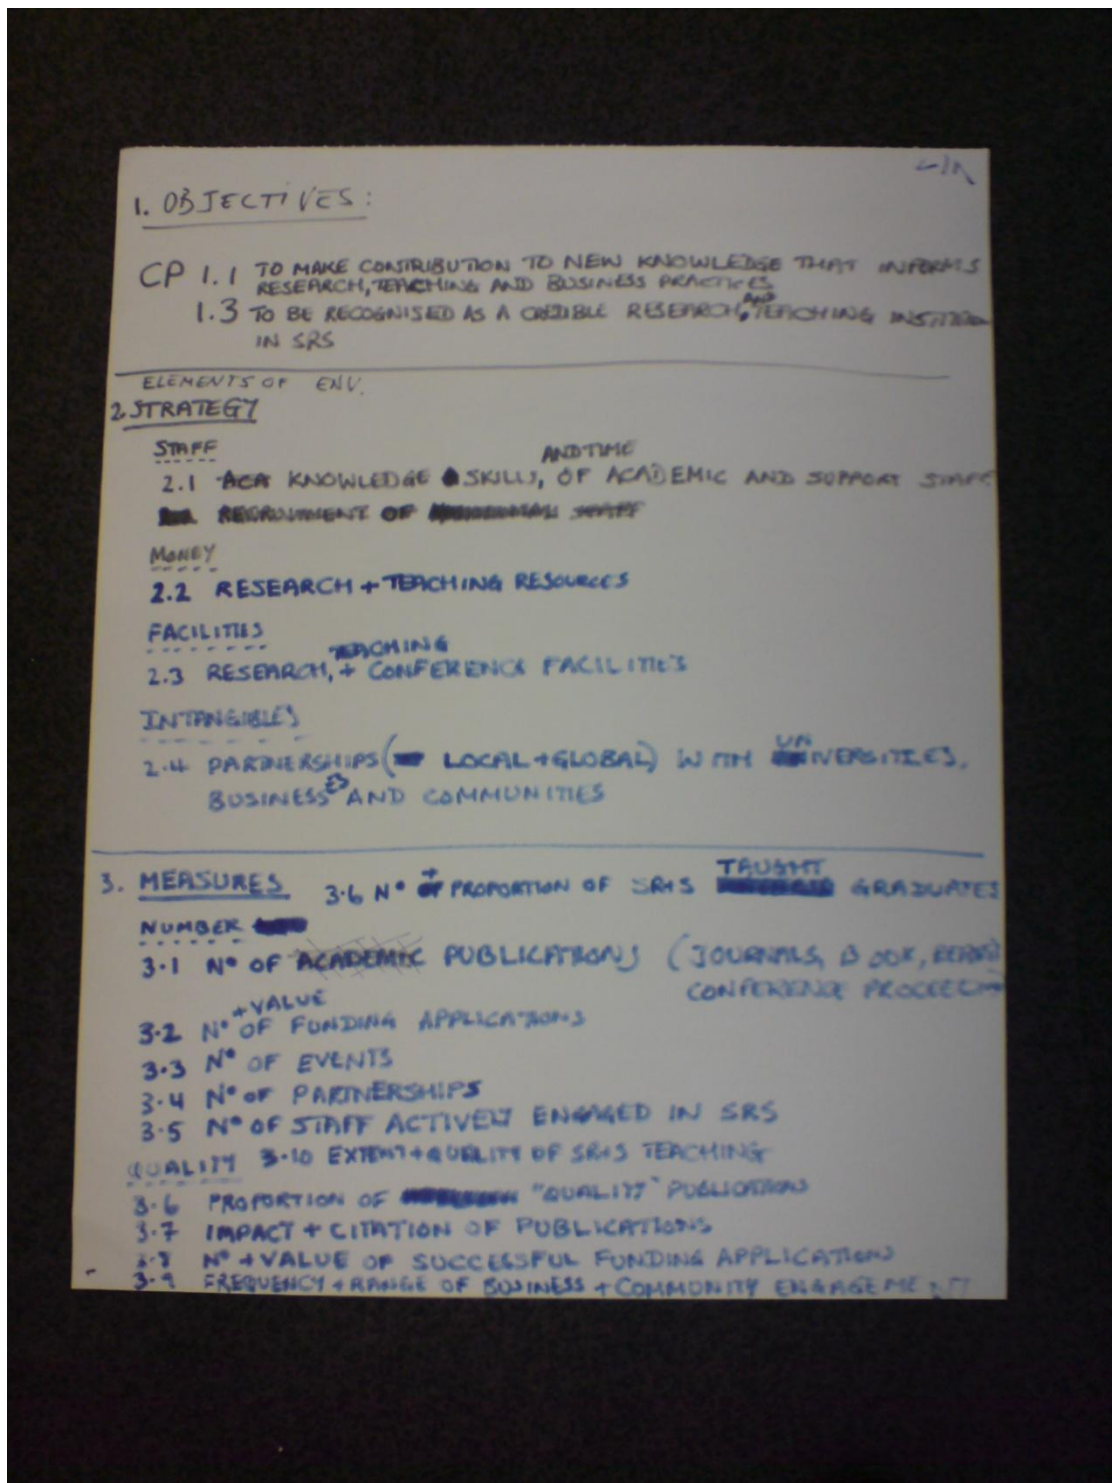 1. OBJECTIVES:
CP 1.1 TO MAKE CONTRIBUTION TO NEW KNOWLEDGE THAT INFORMS
RESEARCH, TEACHING AND BUSINESS PRACTICES
1.3 TO BE RECOGNISED AS A CREDIBLE RESEARCH, AND TEACHING
IN SRS
ELEMENTS OF ENV.
2. STRATEGY
STAFF
AND TIME
2.1 ACA KNOWLEDGE SKILLS, OF ACADEMIC AND SUPPORT STAFF
RECRUITMENT OF STAFF
MONEY
2.2 RESEARCH + TEACHING RESOURCES
FACILITIES
TEACHING
2.3 RESEARCH, + CONFERENCE FACILITIES
INTANGIBLES
2.4 PARTNERSHIPS ( LOCAL + GLOBAL) WITH UNIVERSITIES,
BUSINESSES AND COMMUNITIES
3. MEASURES 3.6 Nº + PROPORTION OF SR+S TAUGHT GRADUATES
NUMBER
3.1 Nº OF ACADEMIC PUBLICATIONS (JOURNALS, BOOK,
CONFERENCE
+ VALUE
3.2 Nº OF FUNDING APPLICATIONS
3.3 Nº OF EVENTS
3.4 Nº OF PARTNERSHIPS
3.5 Nº OF STAFF ACTIVELY ENGAGED IN SRS
QUALITY 3.10 EXTENT + QUALITY OF SR+S TEACHING
3.6 PROPORTION OF "QUALITY" PUBLICATIONS
3.7 IMPACT + CITATION OF PUBLICATIONS
3.8 Nº + VALUE OF SUCCESSFUL FUNDING APPLICATIONS
3.9 FREQUENCY + RANGE OF BUSINESS + COMMUNITY ENGAGEMENT